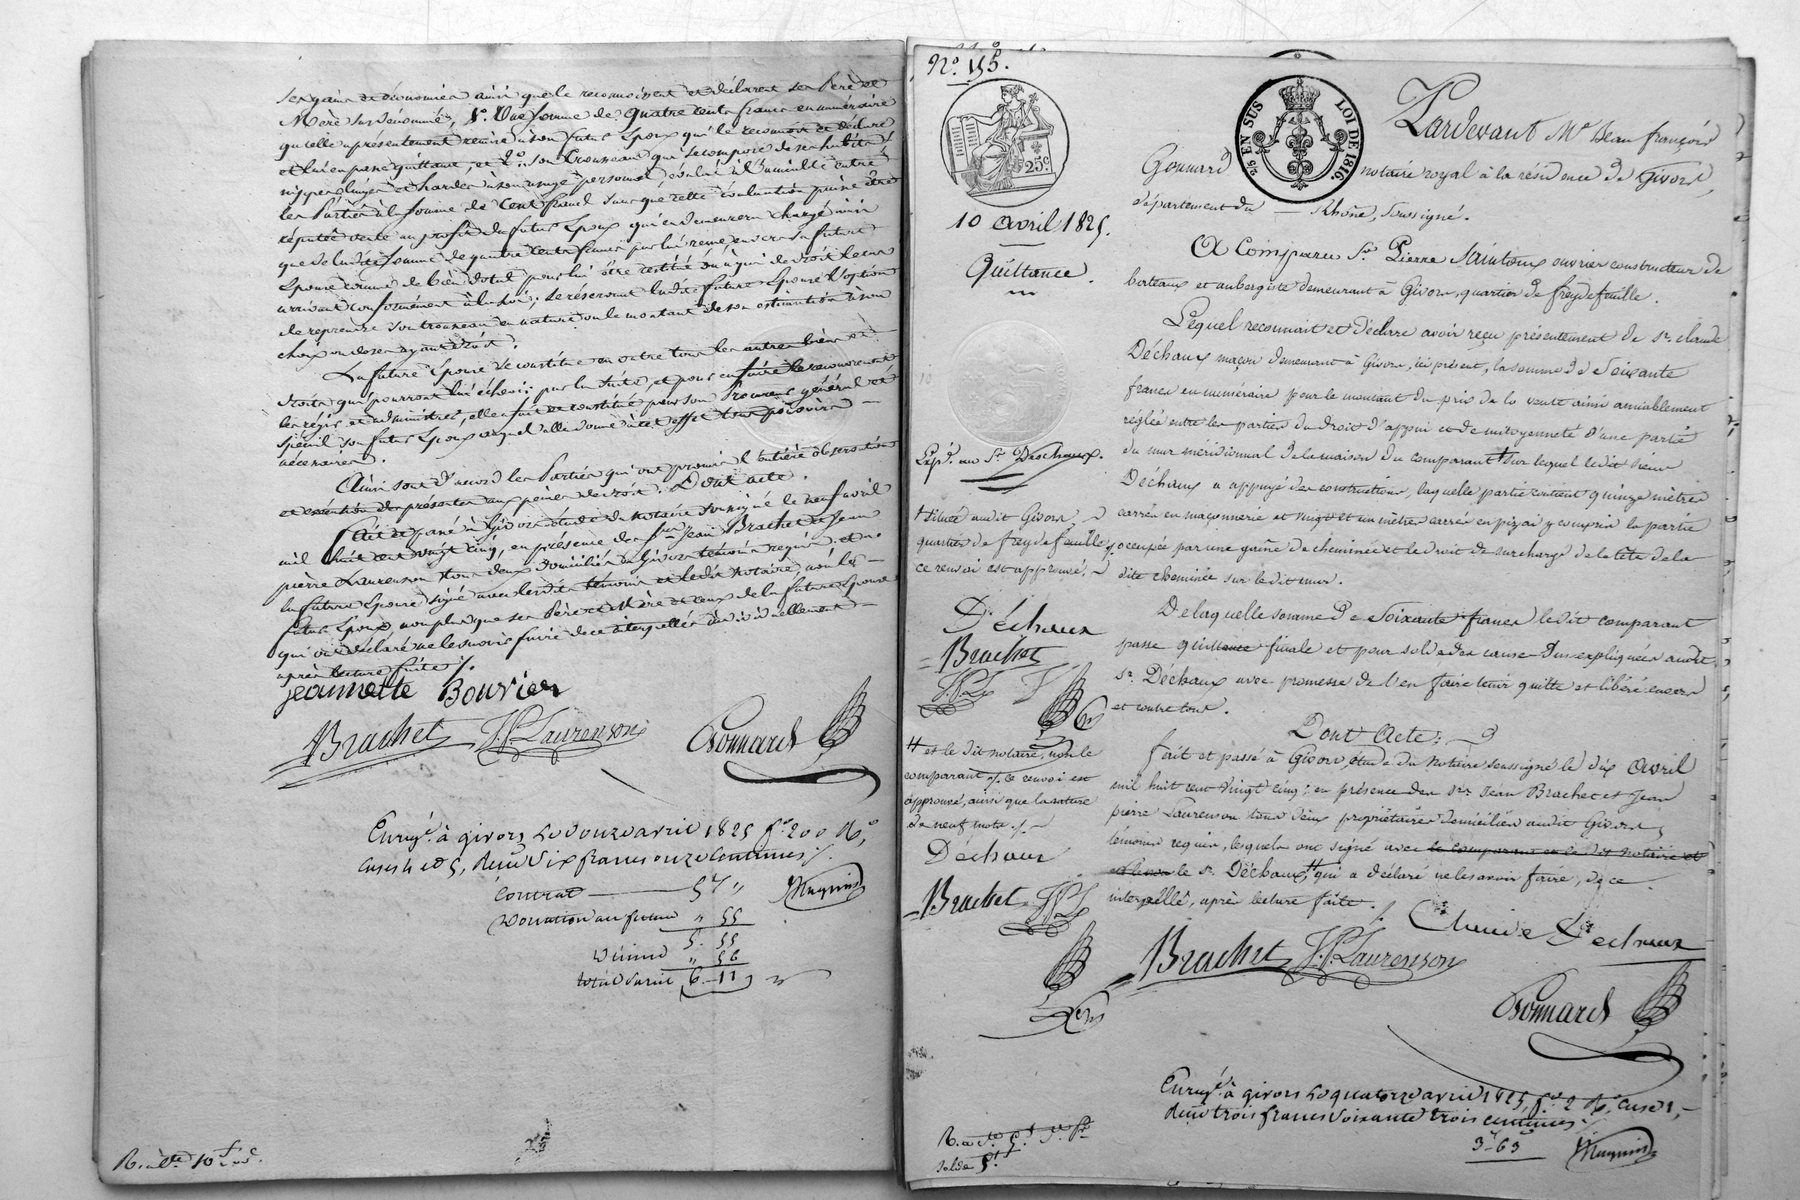 ses gains et économies ainsi que le reconnaissent et déclarent ses Père et
Mère sus dénommés, 1º. Une somme de quatre cents francs en numéraire
qu'elle a présentement remise à son futur Epoux qui le reconnait et déclare
et lui en passe quittance, et 2º. son Trousseau qui se compose de ses habits,
nippes, linges et hardes à son usage personnel évalué à l'amiable entre
les Parties à la somme de Cent francs sans que cette évaluation puisse être
réputée vente au profit du futur Epoux qui en demeurera chargé ainsi
que de ladite somme de quatre cents francs par lui reçue, envers sa future
Epouse comme de bien dotal pour lui être restitué ou à qui de droit le cas
arrivant conformément à la loi; se réservant ladite future Epouse l'option
de reprendre son trousseau en nature ou le montant de son estimation à son
choix ou de ses ayant droit.
La future Epouse se constitue en outre tous les autres biens et
droits qui pourront lui échoir par la suite, et pour en faire le recouvrement
les régir et administrer, elle a fait et constitué pour son Procureur général et
spécial son futur Epoux auquel elle donne à cet effet tous pouvoirs
nécessaires.
Ainsi sont d'accord les Parties qui ont promis l'entière observation
et exécution des présentes aux peines de droit. Dont acte.
Fait et passé à Givors étude du notaire soussigné le neuf avril
mil huit cent vingt cinq, en présence des Srs. Jean Brachet et Jean
pierre Laurenson tous deux domiciliés à Givors témoins requis, et
la future Epouse signé avec lesdits témoins et ledit notaire, non le
futur Epoux non plus que ses Père et Mère et ceux de la future Epouse
qui ont déclaré ne le savoir faire de ce interpellés individuellement
après lecture faite ./.
jeannette Bouvier
Brachet J.P. Laurenson Gonnard
Enregé. à givors le douze avril 1825 fo. 200 Ro.
cases 4 et 5, Reçu six francs onze centimes ./.
Contrat 5f "
Donation au futur " 55
5. 55
Décime " 56
total Sarié 6 - 11
No. 155.
25c
10 avril 1825.
Quittance.
Expd. au Sr. Deschaux.
+ située audit Givors
quartier de freydefeuille,
ce renvoi est approuvé.
Déchaux
Brachet
J.P.L.
++ et le dit notaire, non le
comparant ./. ce renvoi est
approuvé, ainsi que la rature
de neuf mots ./.
Déchaux
Brachet J.P.L.
2/5 EN SUS LOI DE 1816.
Pardevant Me. Jean françois
Gonnard notaire royal à la résidence de Givors,
département du Rhône, soussigné.
A Comparu Sr. Pierre Saintoux ouvrier constructeur de
bateaux et aubergiste demeurant à Givors, quartier de freydefeuille.
Lequel reconnait et déclare avoir reçu présentement de sr. claude
Déchaux maçon demeurant à Givors, ici présent, la somme de soixante
francs en numéraire pour le montant du prix de la vente ainsi amiablement
réglée entre les parties du droit d'appui et de mitoyenneté d'une partie
du mur méridional de la maison du comparant + sur lequel ledit sieur
Déchaux a appuyé des constructions, laquelle partie contient quinze mètres
carrés en maçonnerie et vingt et un mètres carrés en pizai y compris la partie
occupée par une gaîne de cheminée et le droit de surcharge de la tête de la
dite cheminée sur ledit mur.
De laquelle somme de soixante francs ledit comparant
passe quittance finale et pour solde des causes sus expliquées audit
sr. Déchaux avec promesse de l'en faire tenir quitte et libéré envers
et contre tous.
Dont Acte:
fait et passé à Givors, étude du Notaire soussigné le dix Avril
mil huit cent vingt cinq; en présence des srs. Jean Brachet et Jean
pierre Laurenson tous deux propriétaires domiciliés audit Givors
témoins requis, lesquels ont signé avec le comparant et le dit notaire et
le sr. Déchaux ++ qui a déclaré ne le savoir faire, de ce
interpellé, après lecture faite ./.
Claude Dechaux
Brachet J.P. Laurenson
Gonnard
Enregé. à givors le quatorze avril 1825, fo. 2 Ro. case 1,
Reçu trois francs soixante trois centimes.
3 - 63